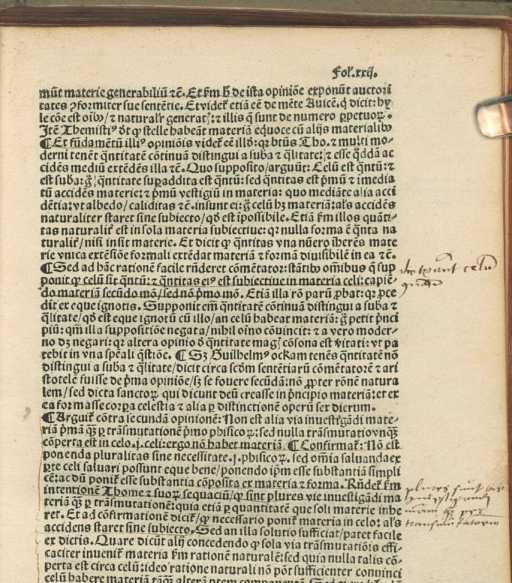 Fol.xxij.
mũt materie generabiliũ ⁊c̃. Et ẜm h̃ de ista opiniõe exponũt auctori
tates ⁊ formiter sue sentẽtie. Et videt̃ etiã eẽ de mẽte Auicẽ. q̃ dicit: hy
le cõe est oĩbꝰ/ ⁊ naturalr̃ generat̃: ⁊ illis q̃ sunt de numero ꝑpetuoꝝ.
Itẽ Themistiꝰ dr̃ ꝙ stelle habeãt materiã equoce cũ alijs materialibꝰ
¶ Et fũdamẽtũ illiꝰ opiniõis videt̃ eẽ illd̃: q̃ btũs Tho. ⁊ multi mo
derni tenẽt q̃ntitatẽ cõtinuã distingui a suba ⁊ q̃litate: ⁊ esse q̃ddã ac
cidẽs mediũ extẽdẽs illa tẽ. Quo supposito/ arguũt: Celũ est q̃ntũ: ⁊
est suba: g̃ q̃ntitate supraddita est q̃ntũ: sed q̃ntitas est ṗmũ ⁊ ĩmedia
tũ accidẽs materiei: ⁊ ṗmũ vestigiũ in materia: quo mediãte alia acci
dẽtia: vt albedo/ caliditas ⁊c̃. insunt ei: g̃ celũ hʒ materiã: als̃ accidẽs
naturaliter staret sine subiecto/ qd̃ est ipossibile. Etiã ẜm illos quãti-
tas naturalit̃ est in sola materia subiectiue: qr̃ nulla forma ẽ q̃nta na
turalit̃/ nisi insit materie. Et dicit̃ ꝙ q̃ntitas vna nũero ĩherẽs mate
rie vnica extẽsiõe formali extẽdat materiã ⁊ formã diuisibilẽ in ea ⁊c̃.
¶ Sed ad hãc rationẽ facile rñderet cõmẽtator: stãtibꝰ oĩbus q̃ sup
ponit̃ qr̃ celũ sit q̃ntũ: ⁊ q̃ntitas eiꝰ est subiectiue in materia celi: capiẽ-
do materiã secũdo mõ/ sed nõ ṗmo mõ. Etiã illa rõ parũ ꝓbat: qr̃ ꝓce
dit ex eque ignotis. Supponit em̃ q̃ntitatẽ cõtinuã distingui a suba ⁊
q̃litate/ qd̃ est eque ignotũ cũ illo/ an celũ habeat materiã: g̃ petit ṗnci
piũ: qm̃ illa suppositiõe negata/ nihil oĩno cõuincit: ⁊ a vero moder-
no dʒ negari: qr̃ altera opinio d̃ q̃ntitate mag̃ cõsona est ṽitati: vt pa
tebit in vna sp̃eali q̃stiõe. ¶ Sʒ Guilhelmꝰ ockam tenẽs q̃ntitatẽ nõ
distingui a suba ⁊ q̃litate/ dicit circa scd̃m sentẽtiarũ cõmẽtatorẽ ⁊ ari
stotelẽ fuisse de ṗma opiniõe/ sʒ se fouere secũdã: nõ ꝓpter rõnẽ natura
lem/ sed dicta sanctoꝝ qui dicunt deũ creasse in ṗncipio materiã: et ex
ea formasse corꝑa celestia ⁊ alia ꝑ distinctionẽ operũ sex dierum.
¶ Arguit̃ cõtra secũdã opinionẽ: Non est alia via inuestigãdi mate-
riã ṗmã q̃ ꝑ trãsmutationẽ ṗmo phisicoꝝ: sed nulla trãsmutatio vnqꝫ
cõperta est in celo. j. celi: ergo nõ habet materiã. ¶ Confirmat̃: Nõ est
ponenda pluralitas sine necessitate. j. phisicoꝝ. sed oĩa saluanda ex
ꝑte celi saluari possunt eque bene/ ponendo ip̃m esse substantiã simpli
cẽ: ac dũ ponit̃ esse substantiã cõposita ex materia ⁊ forma. Rñdet̃ ẜm
intentionẽ Thome ⁊ suoꝝ sequaciũ/ ꝙ sint plures vie inuestigãdi ma
teriã q̃ ꝑ trãsmutationẽ: quia etiã ꝑ quantitatẽ que soli materie inhe
ret. Et ad cõfirmationẽ dicit̃/ ꝙ necessario ponit̃ materia in celo: als̃
accidens staret sine subiecto. Sed an illa solutio sufficiat/ patet facile
ex dictis. Quare dicũt alij concedendo ꝙ sola via trãsmutatiõis effi-
caciter inuenit̃ materia ẜm rationẽ naturalẽ: sed quia nulla talis cõ-
perta est circa celũ: ideo ratione naturali nõ põt sufficienter conuinci
celũ habere materiã